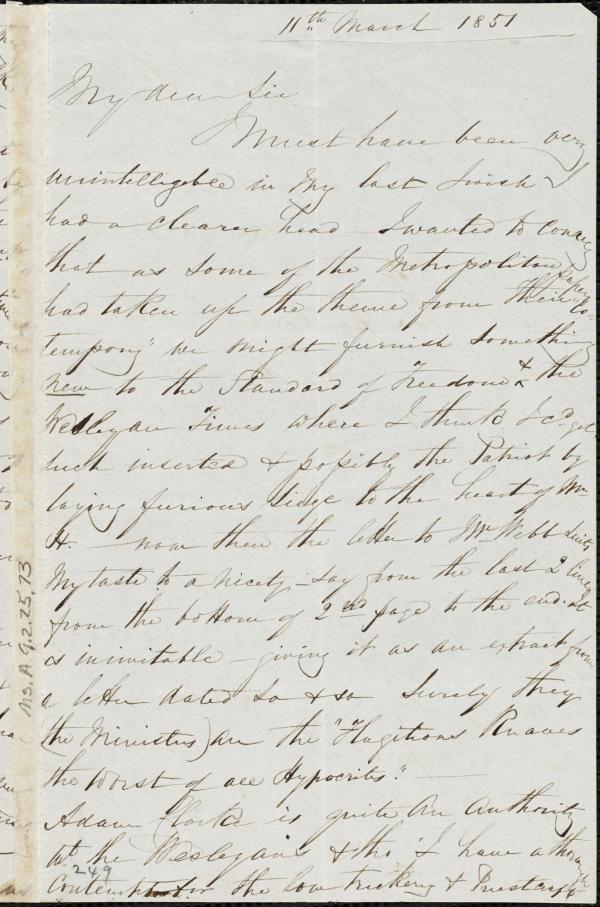 11th March 1851
My dear Sir
I Must have been very
unintelligible in My last I wish I
had a clearer head I wanted to convey
that as some of the Metropolitan Papers
had taken up the theme from their "Co-
tempory" we might furnish something
new to the Standard of Freedom & the
Wesleyan Times where I think I cd. get
such inserted & possibly the Patriot by
laying furious siege to the heart of Mr
H. - now then the letter to Mr Webb suits
My taste to a nicety - say from the last 2 lines
from the bottom of 2nd page to the end. It
is inimitable - giving it as an extract from
a letter dated so & so Surely they
(the Ministers) are the "Flagitious Knaves
the worst of all Hypocrites."
Adam Clarke is quite an authority
wt the Wesleyans & tho' I have a thorough
contempt for the low trickery & Priestcraft
Ms. A. 9.2.25,73
249